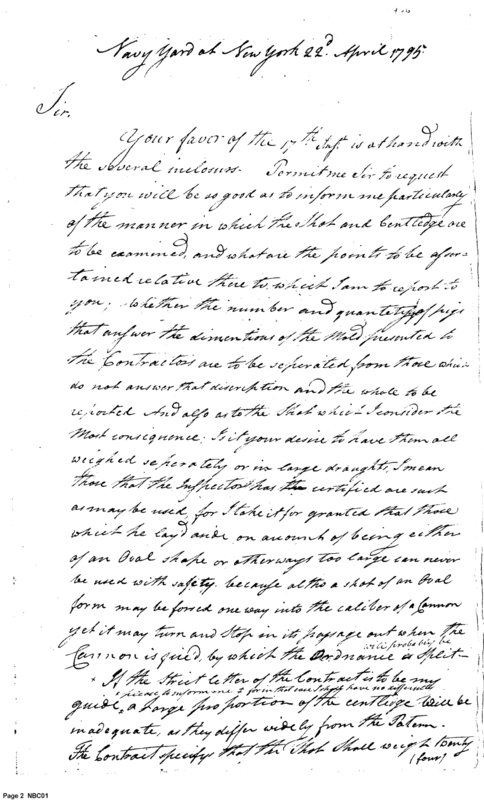 Navy Yard at New York 22d. April 1795.
Sir,
Your favor of the 17th Inst. is at hand with
the several inclosurs. Permit me Sir to request
that you will be so good as to inform me particularly
of the manner in which the Shot and Centledge are
to be examined, and what are the points to be assor-
tained relative there to, which I am to report to
you; whether the number and quantety of pigs
that answer the dimentions of the Mold presented to
the Contractors are to be seperated from those which
do not answer that discription and the whole to be
reported And also as to the Shot which I consider the
Most consequence; Is it your desire to have them all
weighed seperately or in large draughts, I mean
those that the Inspector has certified are such
as may be used, for I take it for granted that those
which he lay'd aside on account of being either
of an Oval shape or otherways too large can never
be used with safety because altho a shot of an Oval
form may be forced one way into the caliber of a Cannon
yet it may turn and Stop in its passage out when the
will probably be
Cannon is fired, by which the Ordnance is Split—
If the Strict letter of the Contract is to be my
please to inform me & for in that case I shall have no difficulty
guide, a large proportion of the centledge will be
inadequate, as they differ widely from the Patern.
The Contract specifys that the Shot Shall weigh twenty
(four)
Page 2 NBC01